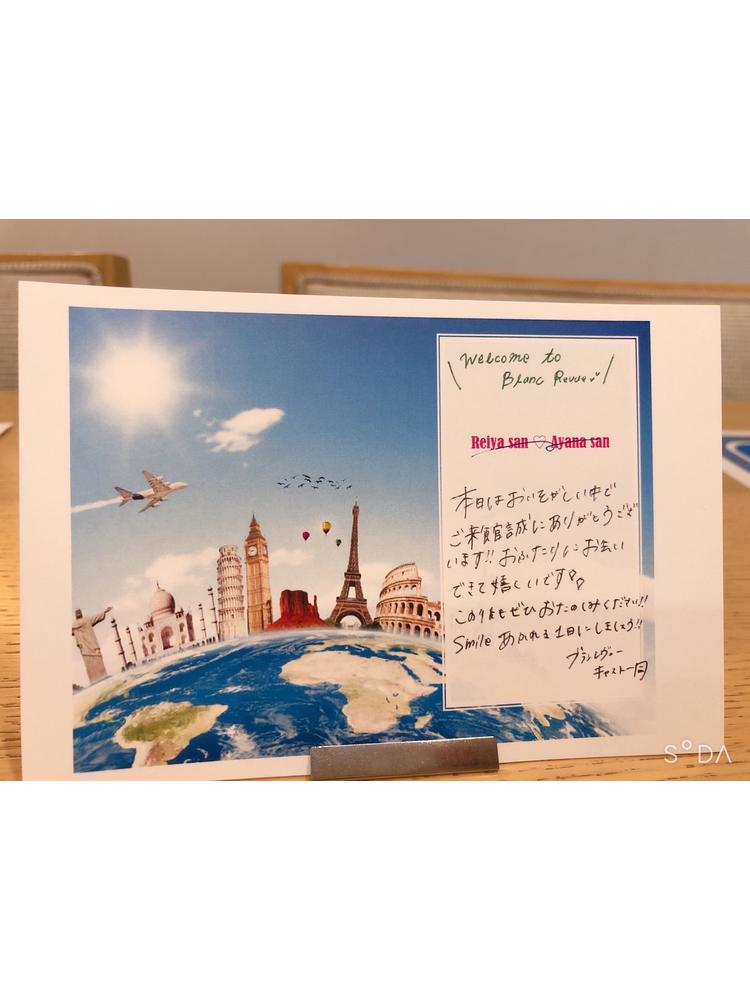 Welcome to
Blanc Revue
Reiya san ♡ Ayana san
本日はおいそがしい中で
ご来館誠にありがとうござ
います!! おふたりにお会い
できて嬉しいです
このあともぜひおたのしみください!!
Smile あふれる1日にしましょう!!
ブランレヴュー
キャスト一同
SODA